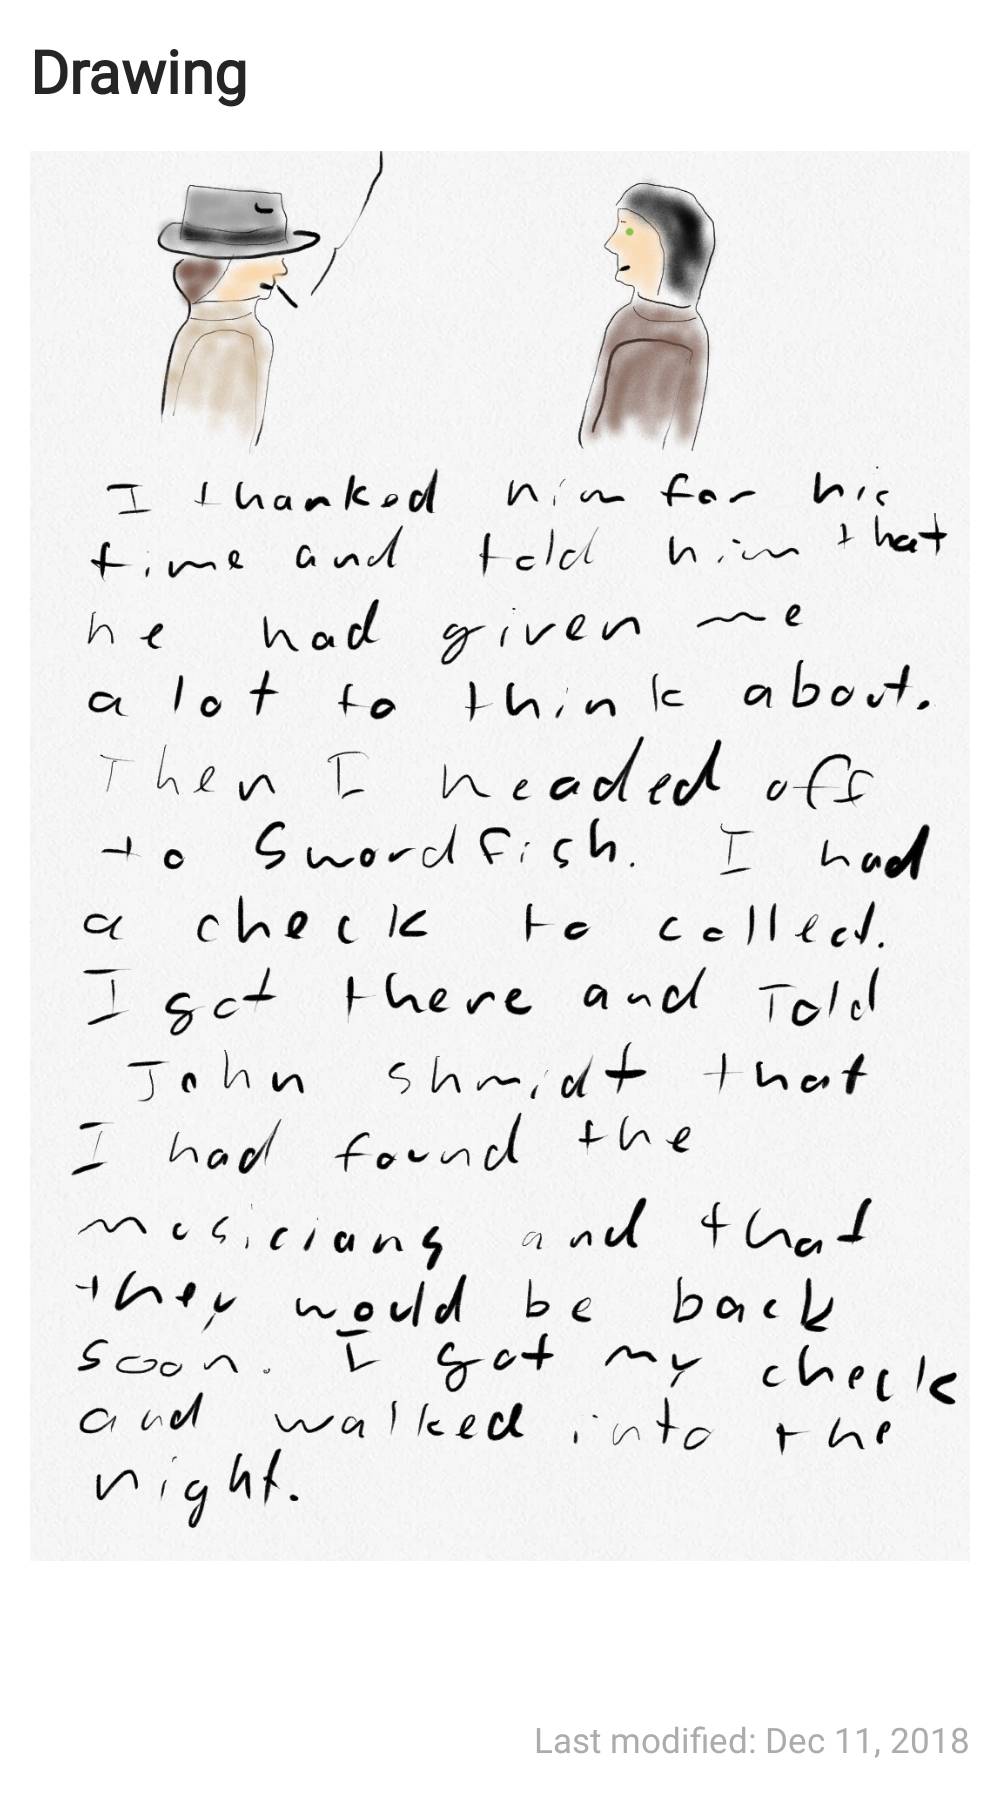 Drawing
I thanked him for his
time and told him that
he had given me
a lot to think about.
Then I headed off
to Swordfish. I had
a check to collect.
I got there and Told
John Shmidt that
I had found the
musicians and that
they would be back
soon. I got my check
and walked into the
night.
Last modified: Dec 11, 2018